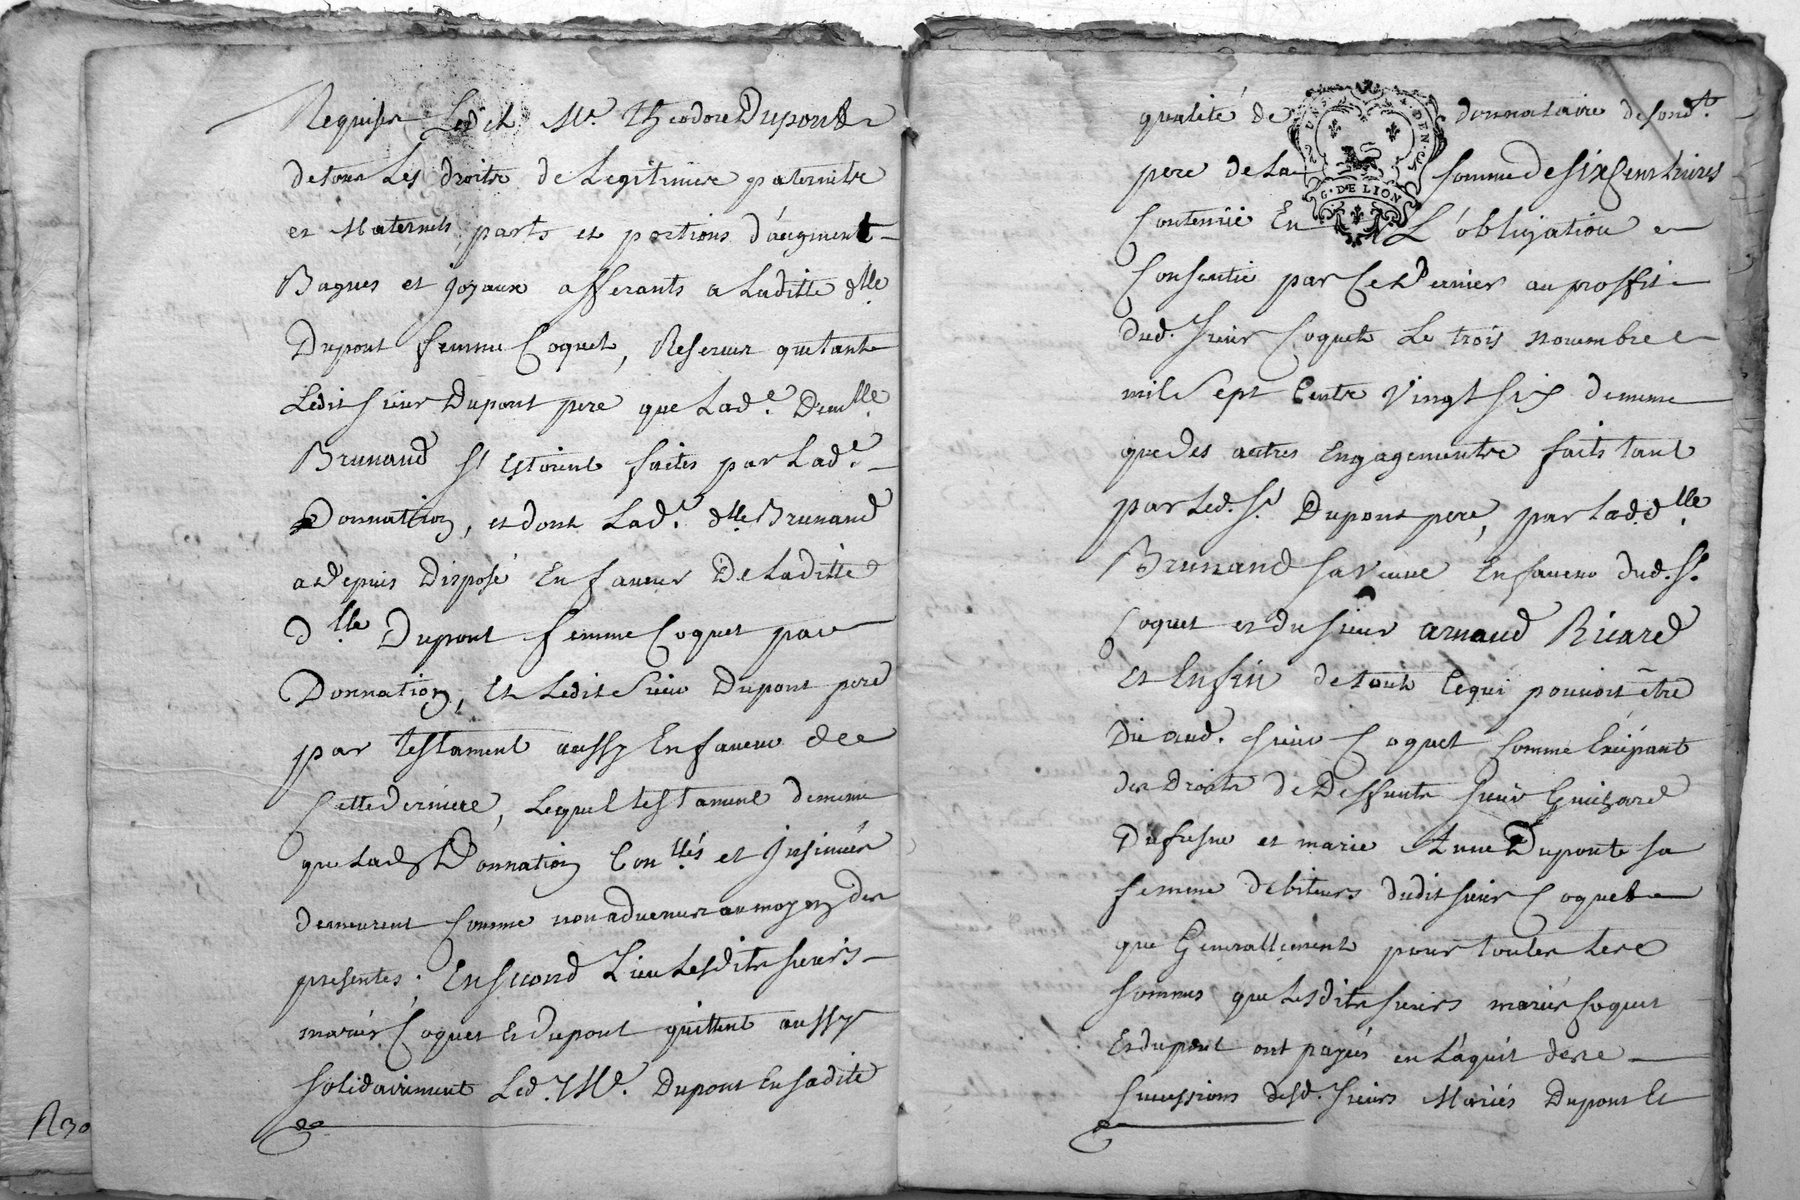 Requiser Ledit Me. Theodore Dupont
detous Les droits de Legitimes paternels
et Maternels parts et portions d'augment
Bagues et joyaux afferants a Laditte dlle
Dupont femme Coquet, Reserves quetant
Ledit sieur Dupont pere que Lade. Demlle
Brunand s'estoient faites par Lade.
Donnation, et dont Lade. dlle Brunand
a depuis disposé En faveur De Laditte
dlle Dupont femme Coquet par
Donnation, Et Ledit sieur Dupont pere
par testament aussy En faveur de
Cette derniere, Lequel testament de meme
que Lade. Donnation Con.lles et Insinuées
demeurent Comme non advenus au moyen des
presentes. En second Lieu Lesdits sieurs
mariés Coquet et dupont quittent aussy
solidairement Led. Me. Dupont En sadite
R30
qualité de donnataire de sond.t
pere de La somme de six Cent livres
Contenüe En L'obligation
Consentie par Ce Dernier au proffit
dud. sieur Coquet Le trois novembre
mil Sept Cents Vingt six de meme
que des autres Engagements faits tant
par Led. Sr. Dupont pere, par Lad. dlle
Brunand sa veuve En faveur dud. Sr.
Coquet et du sieur arnaud Ricard
Et Enfin de tout Ce qui pouvoit être
Dû aud. sieur Coquet Comme Excipant
des Droits de Deffunts sieur Guizard
Dufresne et marie Anne Dupont sa
femme debiteurs dudit sieur Coquet
que Generallement pour toutes les
sommes que Lesdits sieurs mariés Coquet
Et dupont ont payées en L'aquit des
Successions desd. sieurs Mariés Dupont Et
G. DE LION